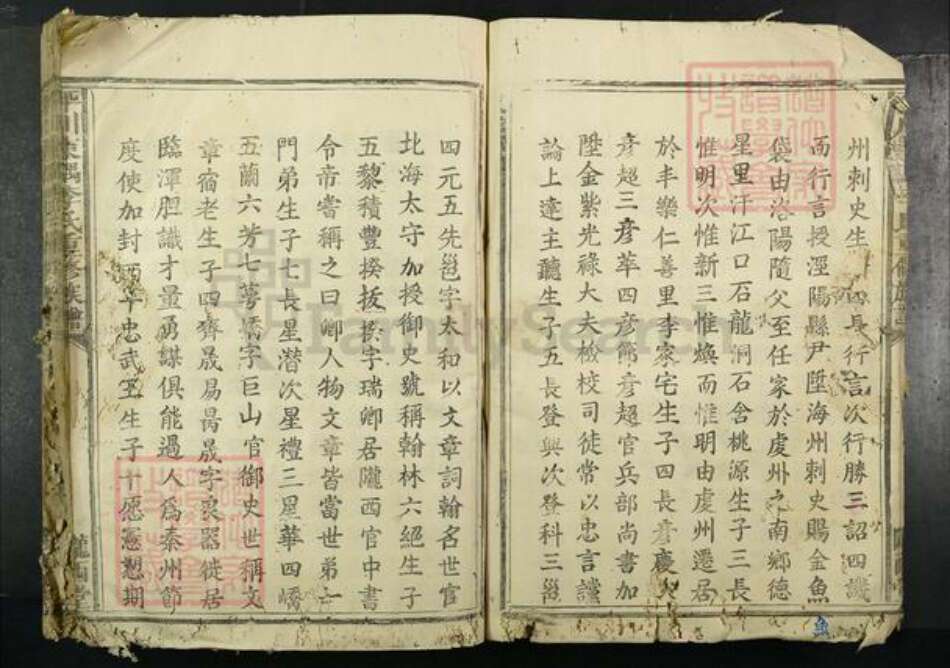 州刺史生 四長行言次行勝三詔四議
而行言授涇陽縣尹陞海州刺史賜金魚
袋由洛陽隨父至任家於虔州之南鄉德
星里汗江口石龍洞石含桃源生子三長
惟明次惟新三惟煥而惟明由虔州遷居
於丰樂仁善里李家宅生子四長彥慶次
彥超三彥華四彥 彥超官兵部尚書加
陞金紫光祿大夫檢校司徒常以忠言讜
論上達主聽生子五長登興次登科三邕
四元五先邕字太和以文章詞翰名世官
北海太守加授御史號稱翰林六絕生子
五黎積豐揆拔揆字瑞卿居隴西官中書
令帝嘗稱之曰卿人物文章皆當世弟一
門弟生子七長星潛次星禮三星華四嶠
五蘭六芳七蒡嶠字巨山官御史世稱文
章宿老生子四齊晟易昺晟字良器徙居
臨潭胆識才量勇謀俱能過人為秦州節
度使加封西平忠武王生子十愿憲恕期
川東隅李氏重修族譜
隴西堂
FamilySearch